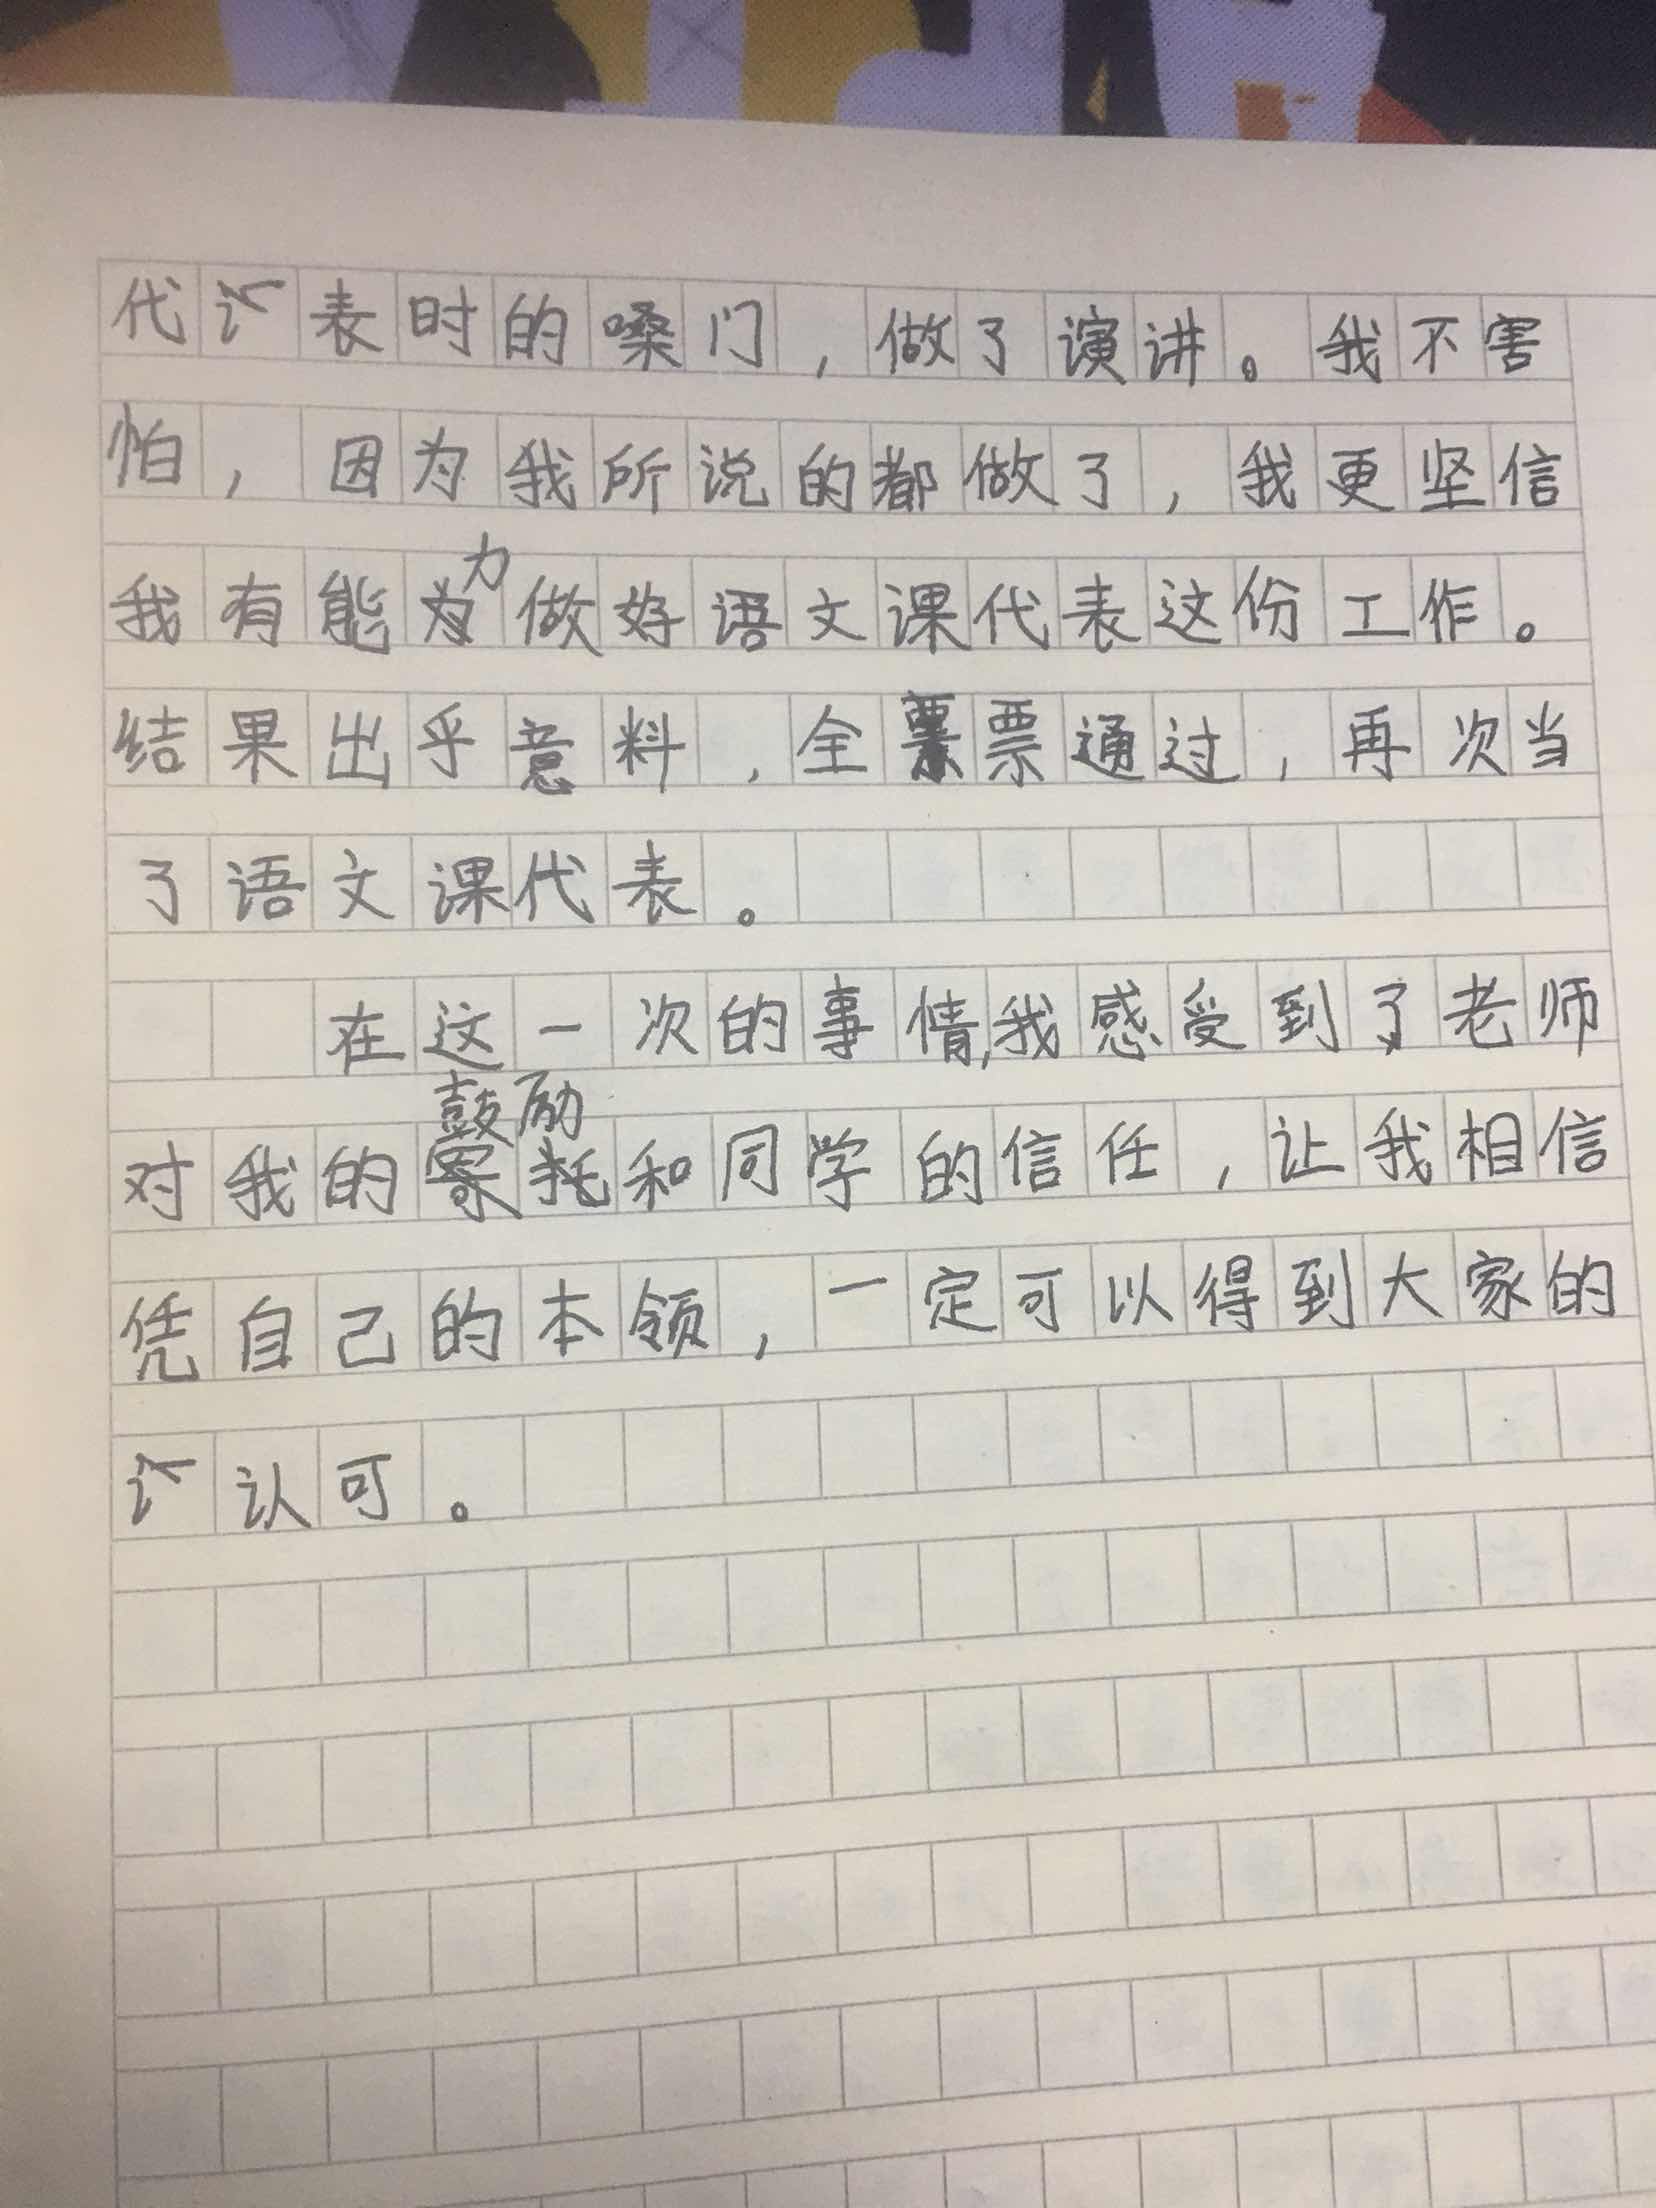 代表时的嗓门，做了演讲。我不害
怕，因为我所说的都做了，我更坚信
我有能力做好语文课代表这份工作。
结果出乎意料，全票通过，再次当
了语文课代表。
在这一次的事情，我感受到了老师
对我的鼓励和同学的信任，让我相信
凭自己的本领，一定可以得到大家的
认可。